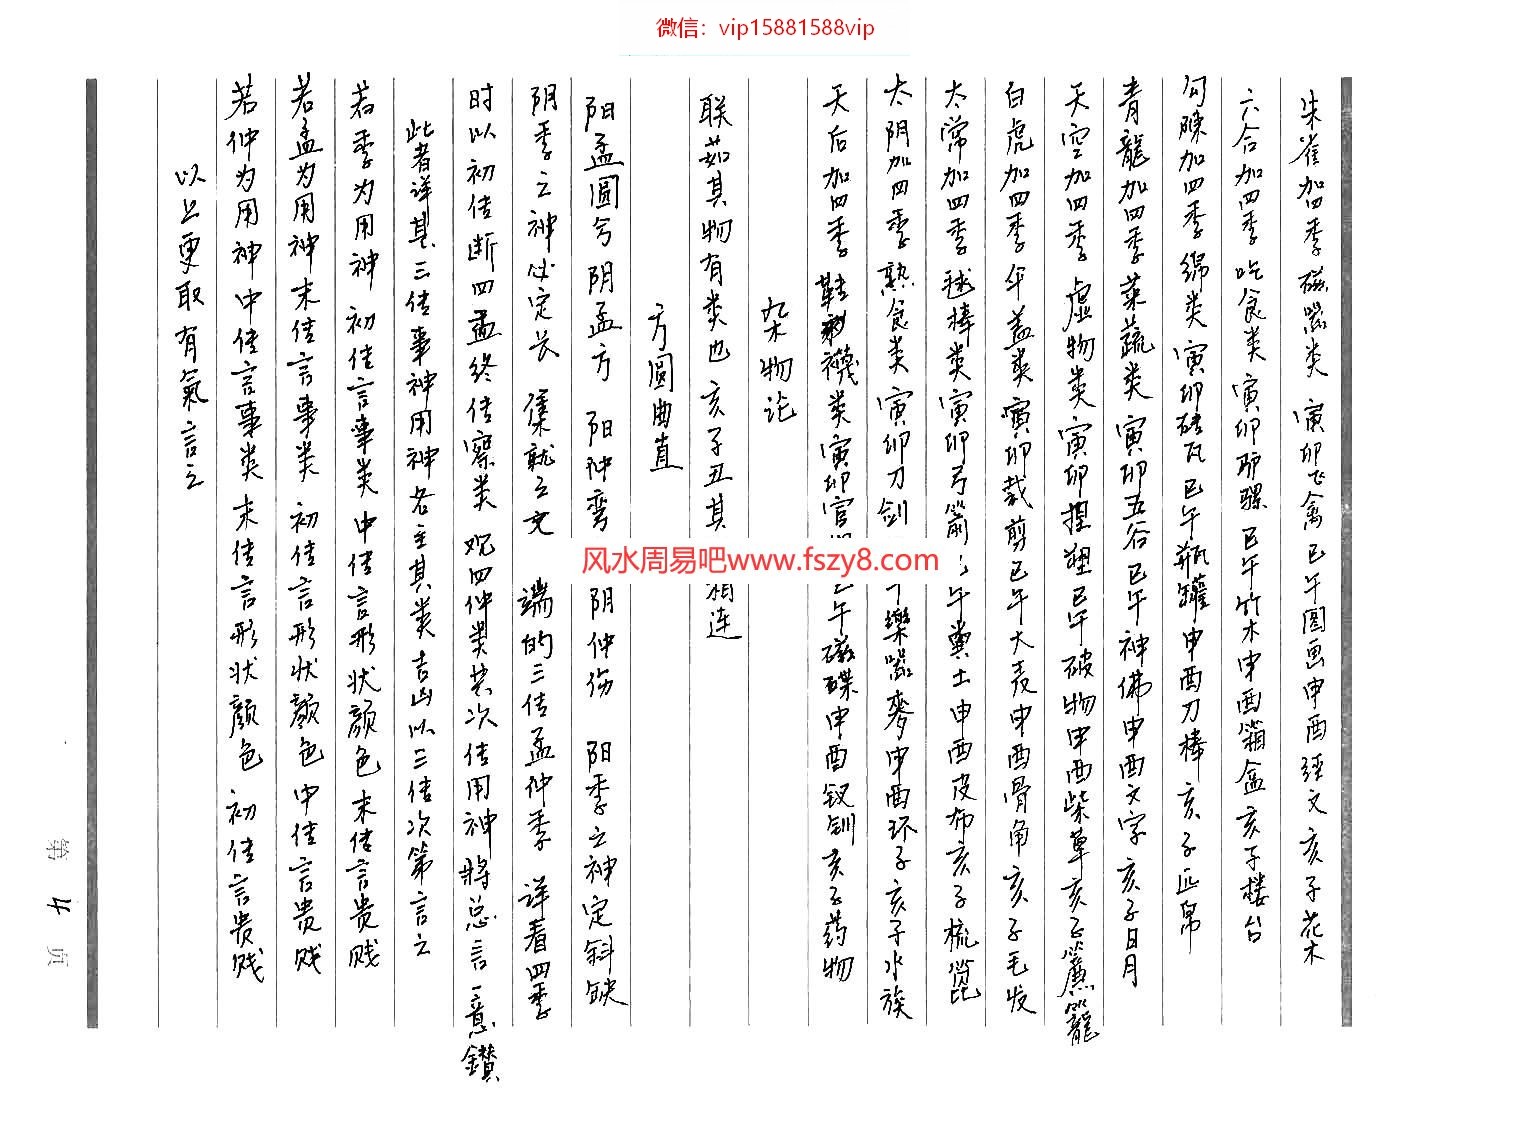 微信：vip15881588vip
朱雀加四季磁器类 寅卯飞禽 巳午图画申酉经文亥子花木
六合加四季吃食类 寅卯驴骡 巳午竹木申酉箱盒亥子楼台
勾陳加四季绵类 寅卯砖瓦巳午瓶罐申酉刀棒亥子匹帛
青龍加四季菜蔬类 寅卯五谷巳午神佛申酉文字亥子日月
天空加四季虚物类 寅卯捏塑巳午破物申酉柴草亥子簾籠
白虎加四季伞盖类 寅卯裁剪巳午大麦申酉骨角亥子毛发
太常加四季毬棒类 寅卯弓箭 午粪土申酉皮布亥子梳篦
太阴加四季熟食类 寅卯刀剑 樂器麥申酉环子亥子水族
天后加四季鞋襪类寅卯官 午磁碟申酉钗钏亥子药物
杂物论
联茹其物有类也 亥子丑其 相连
方圆曲直
阳孟圆兮阴孟方 阳仲弯 阴仲伤 阳季之神定斜缺
阴季之神必定长 集就之文 端的三传孟仲季 详看四季
时以初传断四孟终传察类 观四仲类其次传用神將总言一意鑽
此者详其三传事神用神各主其类吉凶以三传次第言之
若季为用神 初传言事类 中传言形状颜色末传言贵贱
若孟为用神末传言事类 初传言形状颜色中传言贵贱
若仲为用神中传言事类末传言形状颜色 初传言贵贱
以上更取有氣言之
风水周易吧www.fszy8.com
第 页